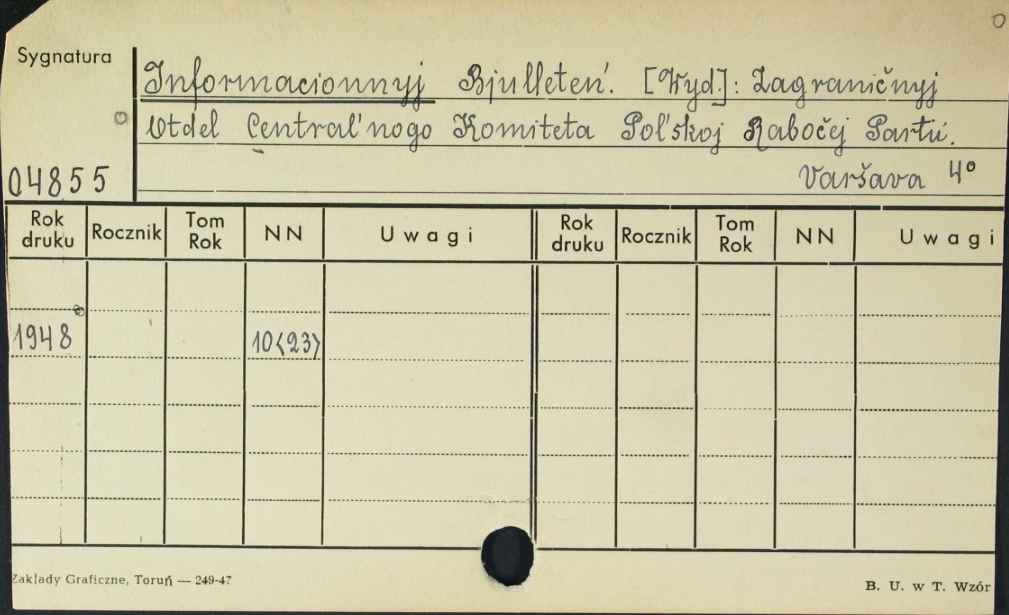 Sygnatura
Informacionnyj Bjulleten'. [Wyd.]: Zagraničnyj
Otdel Central'nogo Komiteta Pol'skoj Rabočej Partii.
04855
Varšava 4°
Rok druku Rocznik Tom Rok NN Uwagi Rok druku Rocznik Tom Rok NN Uwagi
1948 10<23>
Zakłady Graficzne, Toruń — 249-47
B. U. w T. Wzór